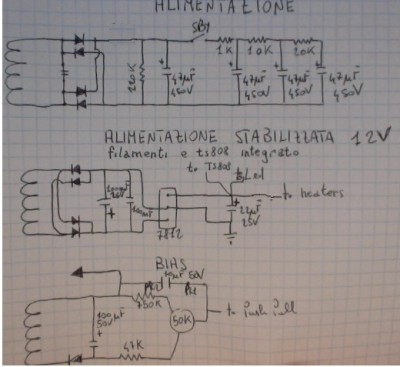 ALIMENTAZIONE
SBY
1K 10K 20K
220K
47µF 450V
47µF 450V
47µF 450V
47µF 450V
ALIMENTAZIONE STABILIZZATA 12V
filamenti e ts808 integrato
to TS808
Led
to heaters
100µF
22µF 25V
7812
BIAS
10µF 50V
150K
100µF 50V
50K
to Push Pull
47K